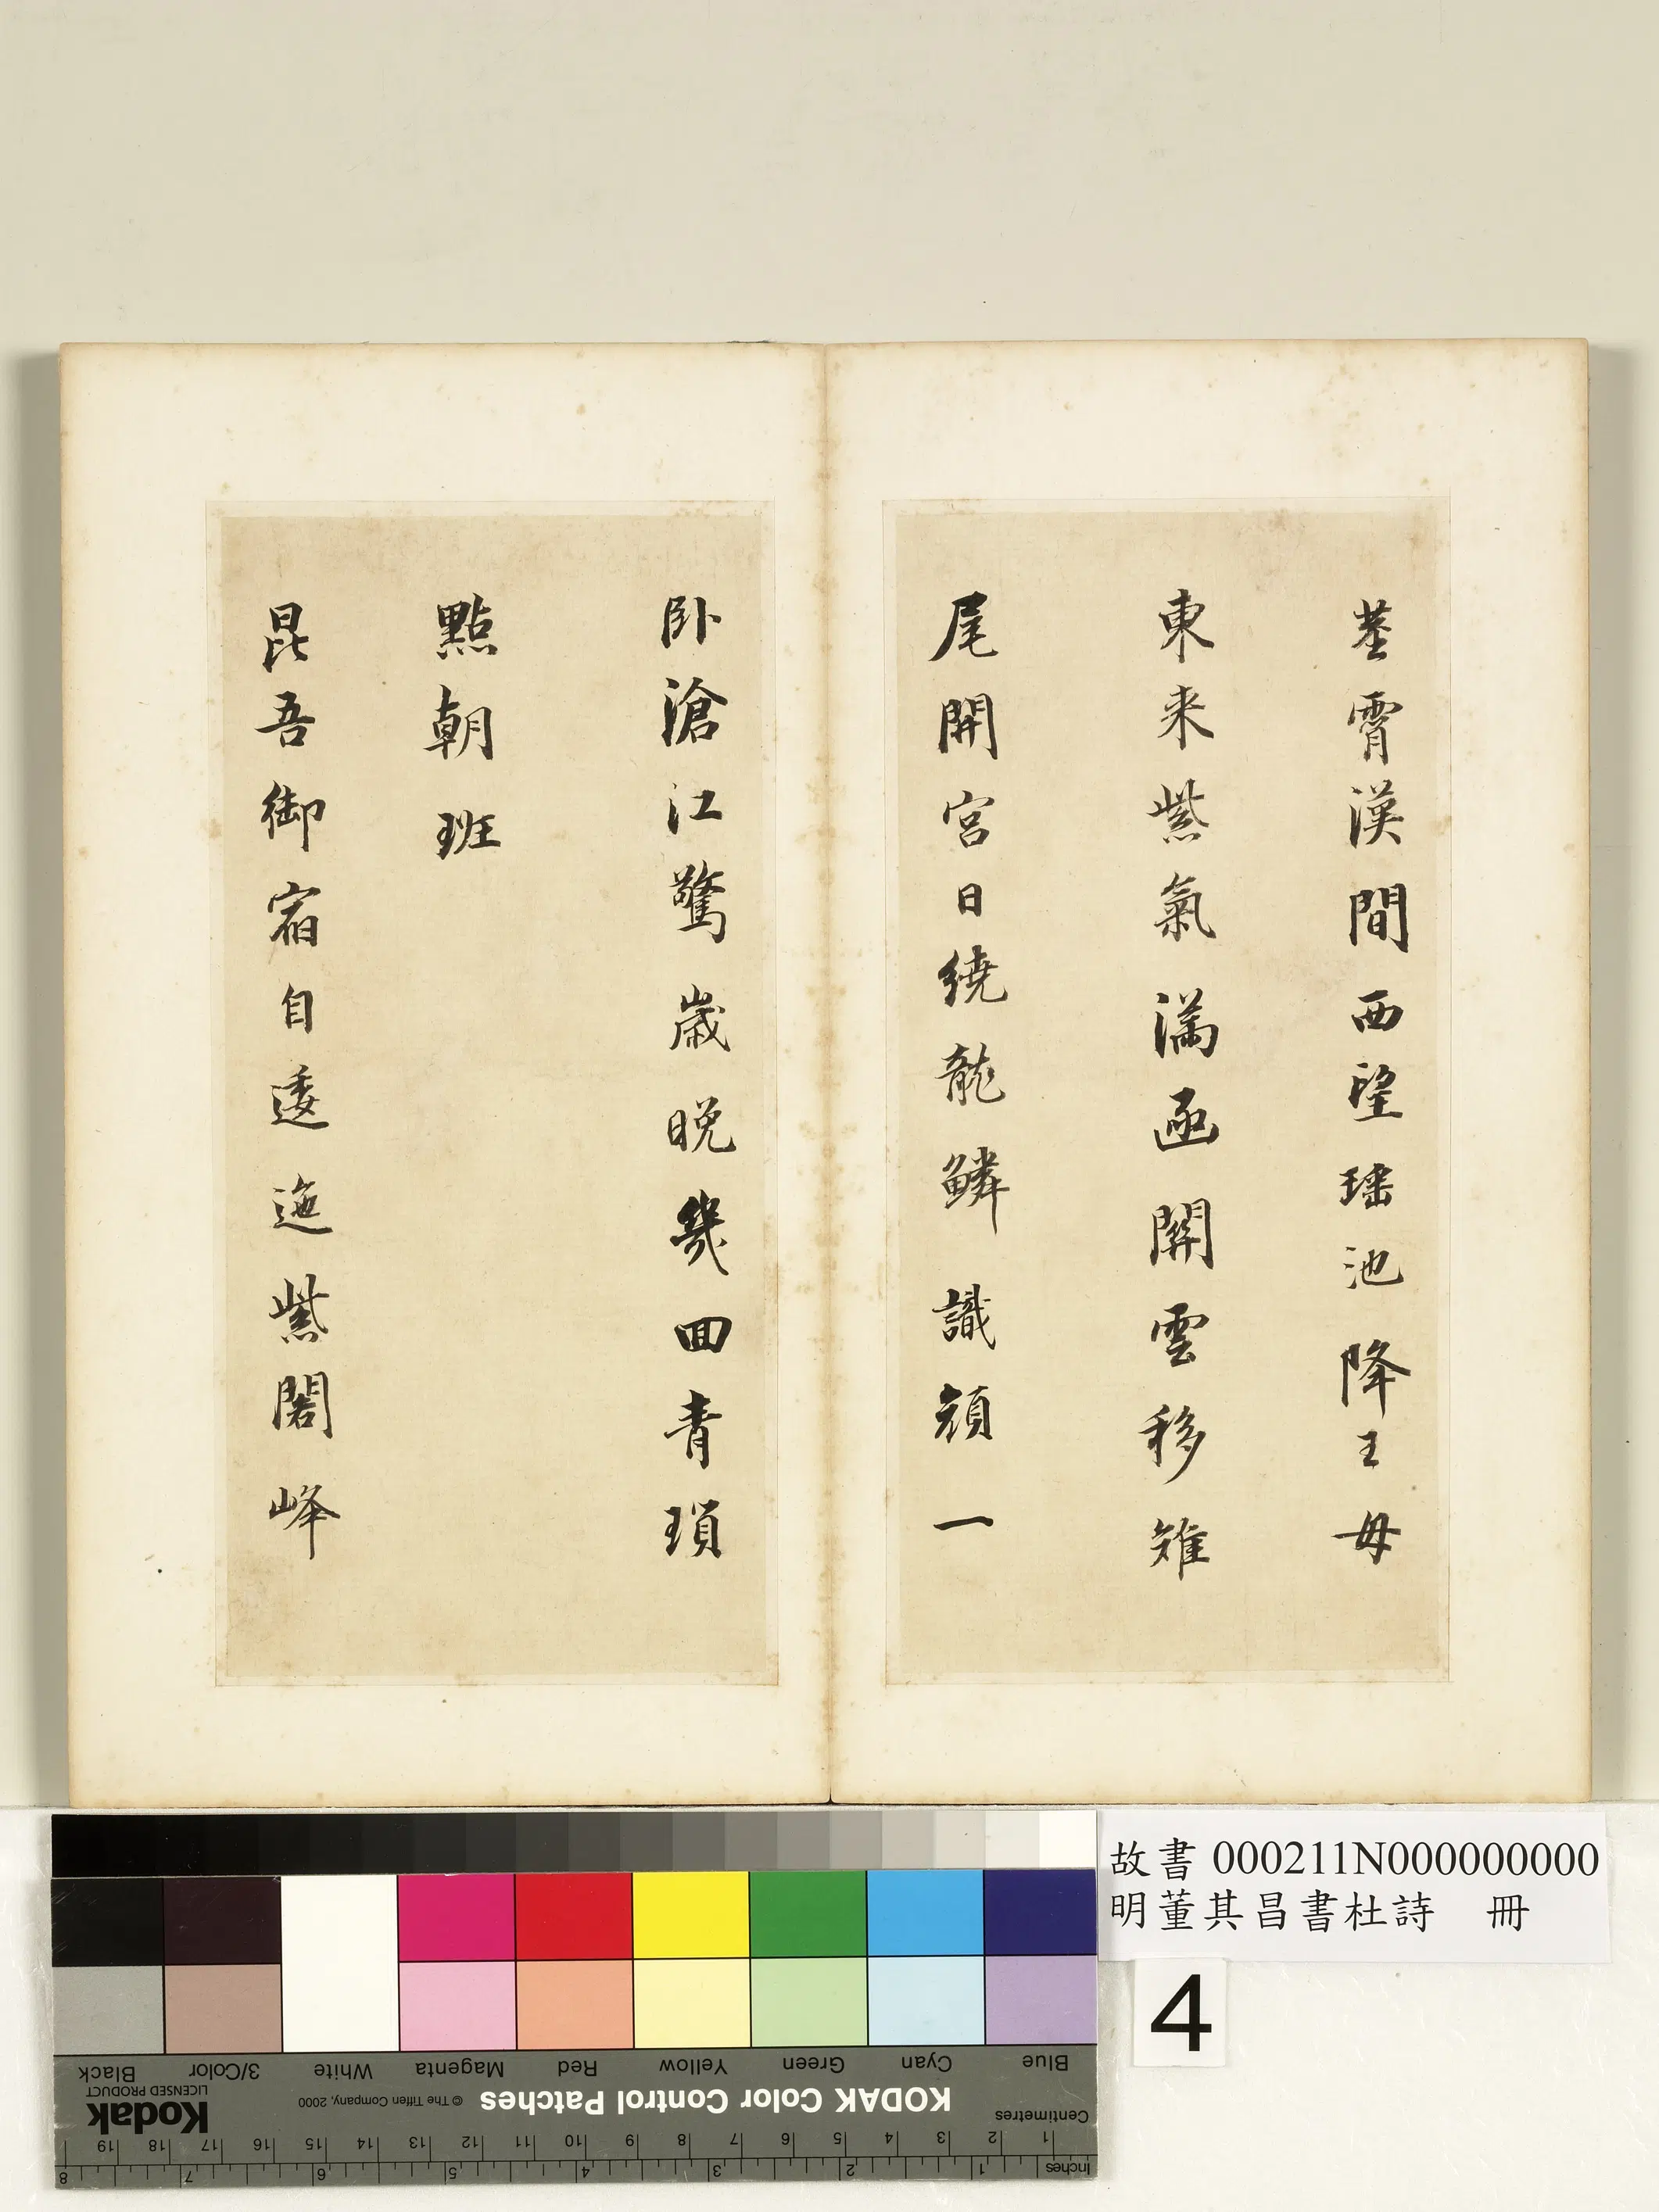 莖霄漢間西望瑤池降王母
東来紫氣滿函關雲移雉
尾開宮日繞龍鱗識顔一
卧滄江驚歲晚幾回青瑣
點朝班
昆吾御宿自逶迤紫閣峰
故書 000211N000000000
明董其昌書杜詩 冊
4
Blue Cyan Green Yellow Red Magenta White 3/Color Black
KODAK Color Control Patches © The Tiffen Company, 2000 Kodak
LICENSED PRODUCT
Centimetres 1 2 3 4 5 6 7 8 9 10 11 12 13 14 15 16 17 18 19
Inches 1 2 3 4 5 6 7 8